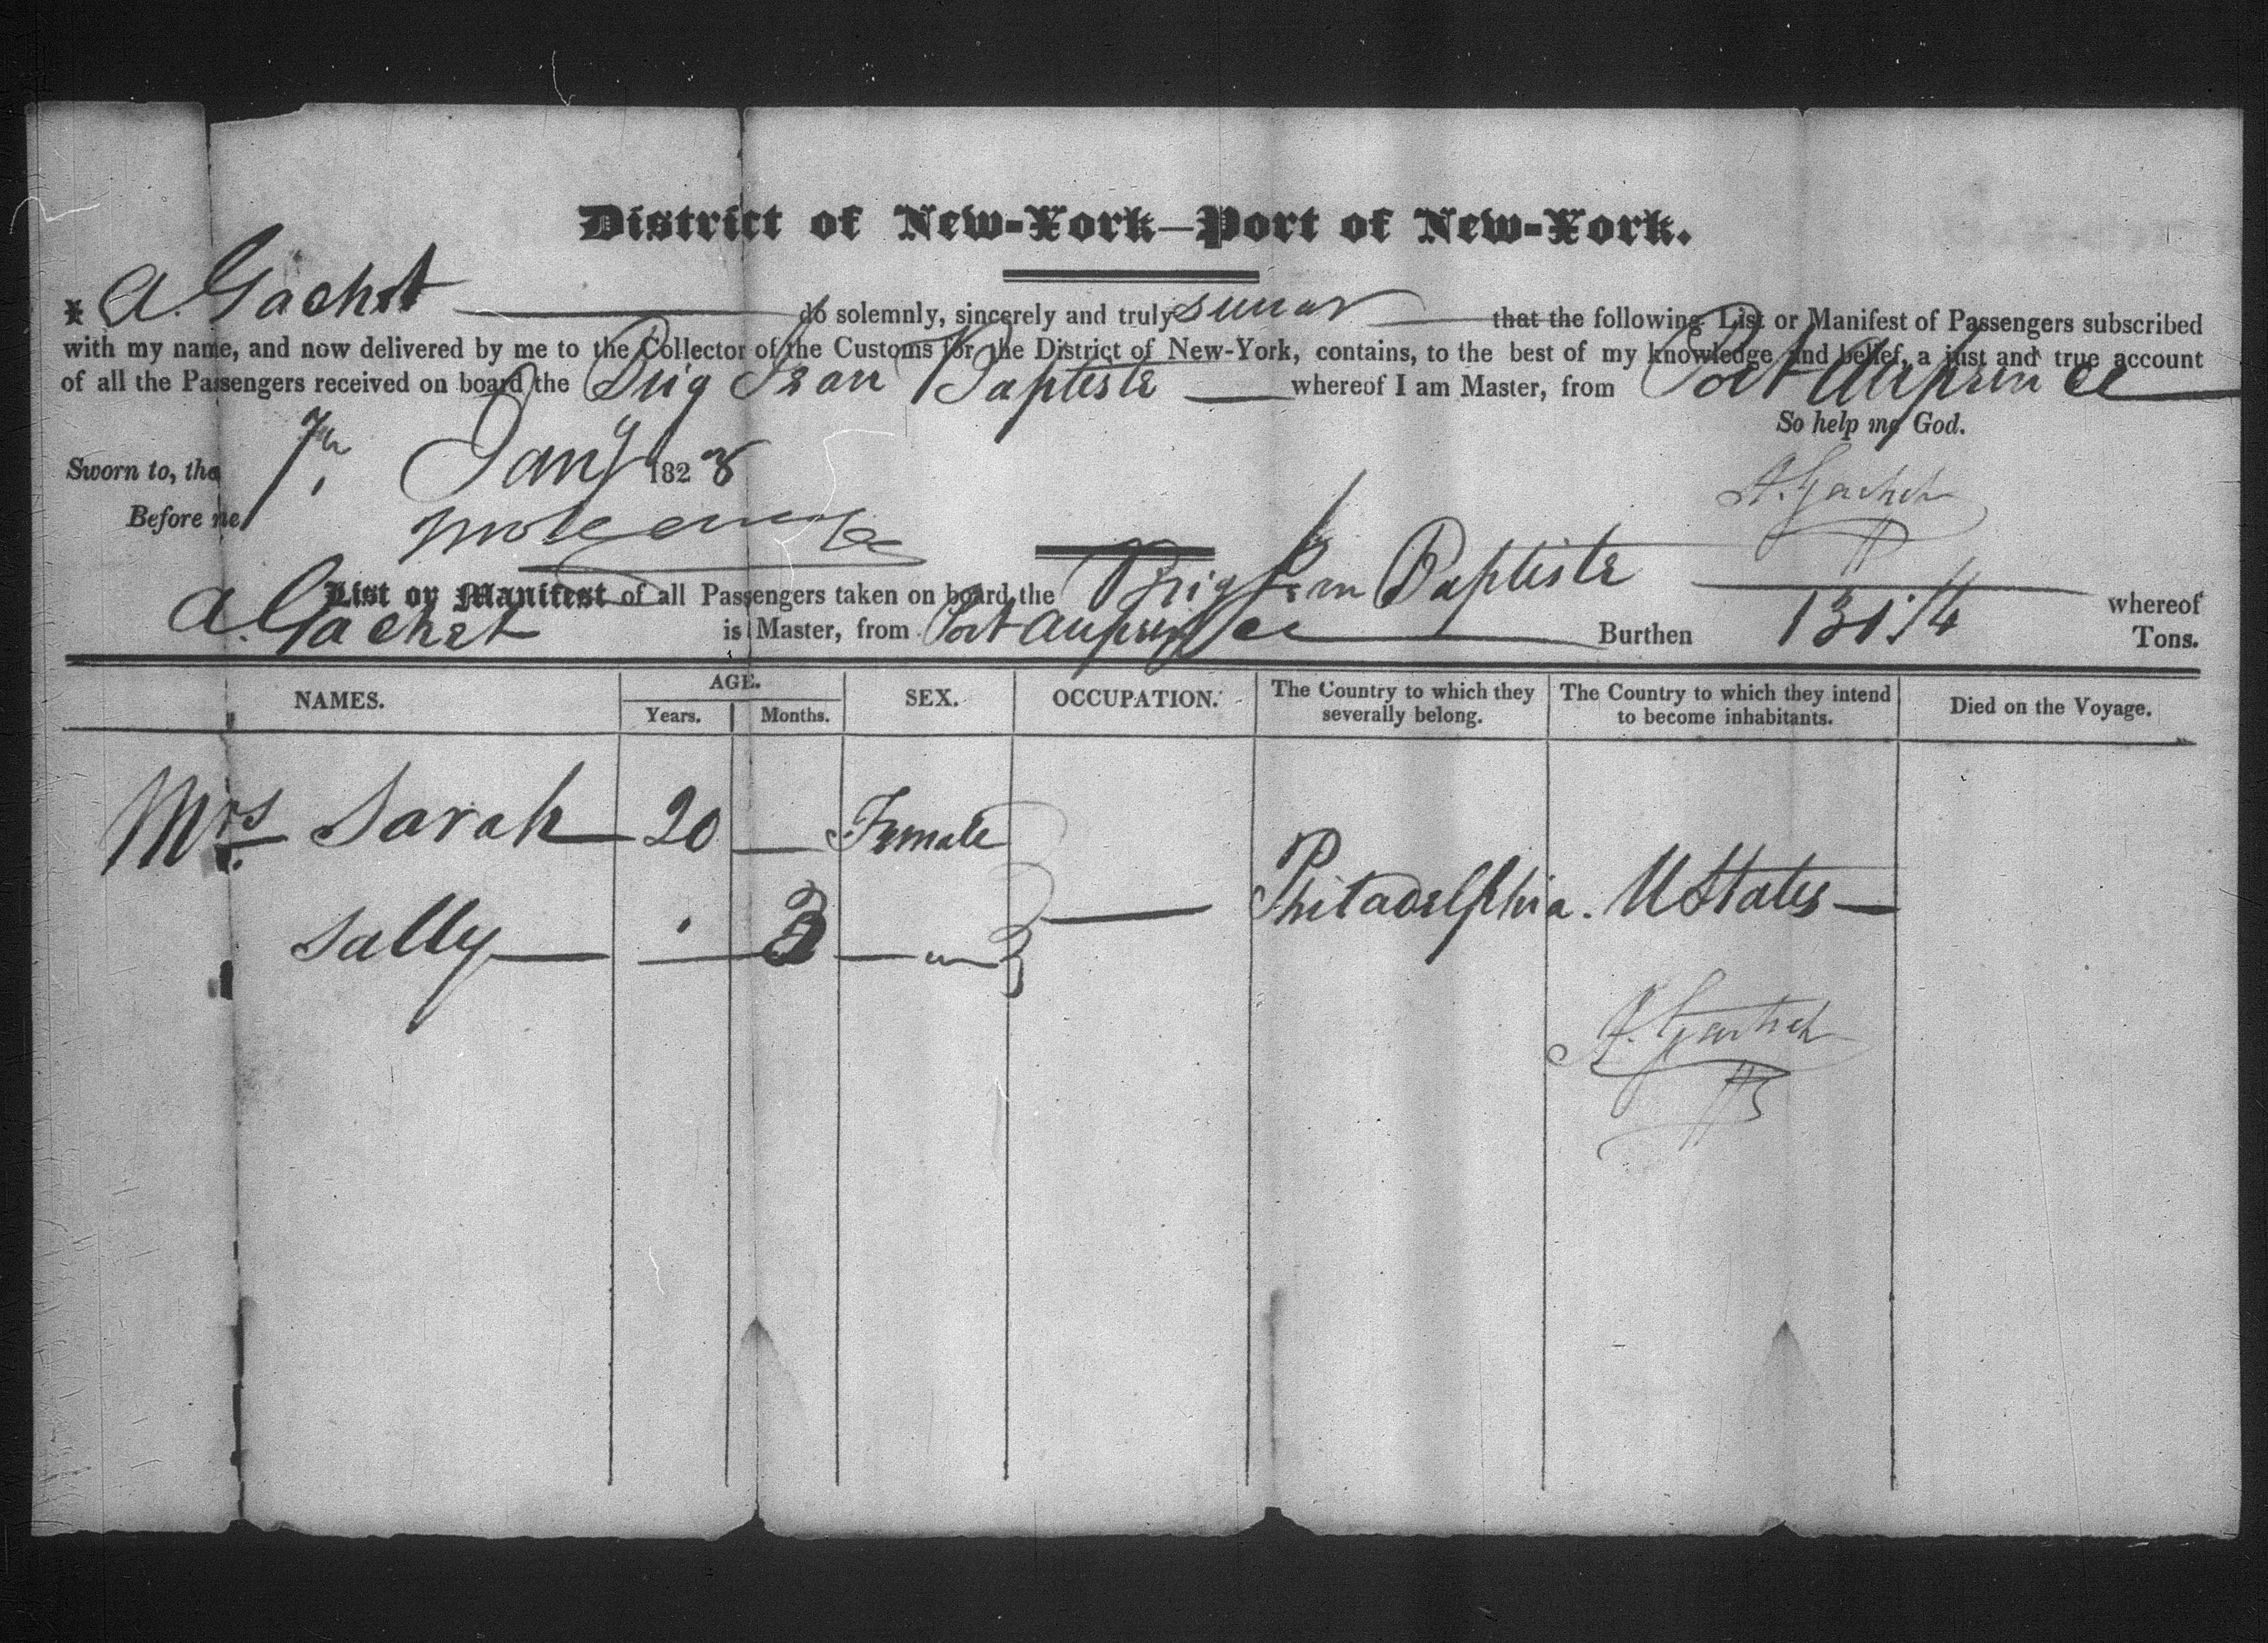 District of New-York—Port of New-York.
I A. Gachet do solemnly, sincerely and truly swear that the following List or Manifest of Passengers subscribed
with my name, and now delivered by me to the Collector of the Customs for the District of New-York, contains, to the best of my knowledge and belief, a just and true account
of all the Passengers received on board the Brig Jean Baptiste whereof I am Master, from Port Auprince
So help me God.
Sworn to, the 7th Jany 1828
A. Gachet
Before me
List or Manifest of all Passengers taken on board the Brig Jean Baptiste whereof
A. Gachet is Master, from Port auprince Burthen 131 Tons.
NAMES. AGE. SEX. OCCUPATION. The Country to which they severally belong. The Country to which they intend to become inhabitants. Died on the Voyage.
Years. Months.
Mrs. Sarah 20 — Female
Philadelphia. U States —
Sally — 3 — "
A. Gachet